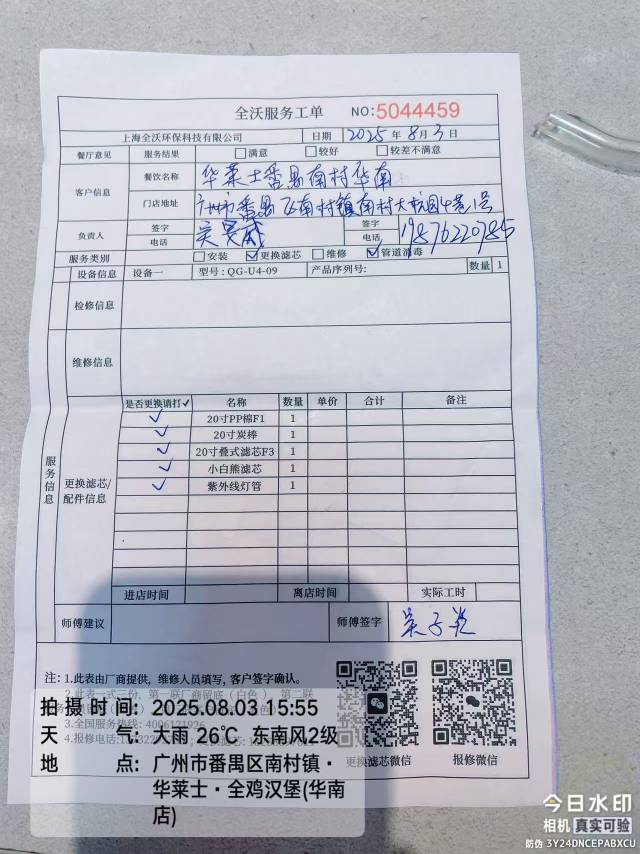 全沃服务工单 NO:5044459
上海全沃环保科技有限公司 日期 2025 年 8 月 3 日
餐厅意见 服务结果 满意 较好 较差不满意
客户信息 餐饮名称 华莱士番禺南村华南
门店地址 广州市番禺区南村镇南村大松园4巷1号
负责人 签字 签字
电话 电话 19876220785
服务类别 安装 ✓更换滤芯 维修 ✓管道消毒
设备信息 设备一 型号:QG-U4-09 产品序列号: 数量 1
检修信息
维修信息
服务信息
更换滤芯/配件信息
是否更换请打✓ 名称 数量 单价 合计 备注
✓ 20寸PP棉F1 1
✓ 20寸炭棒 1
✓ 20寸叠式滤芯F3 1
✓ 小白熊滤芯 1
✓ 紫外线灯管 1
进店时间 离店时间 实际工时
师傅建议 师傅签字
注:1.此表由厂商提供，维修人员填写，客户签字确认。
2.此表一式三份，第一联厂商留底（白色），第二联
3.全国服务热线:4006121926
4.报修电话:
更换滤芯微信 报修微信
拍摄时间: 2025.08.03 15:55
天气: 大雨 26℃ 东南风2级
地点: 广州市番禺区南村镇·
华莱士·全鸡汉堡(华南
店)
今日水印
相机 真实可验
防伪 3Y24DNCEPABXCU